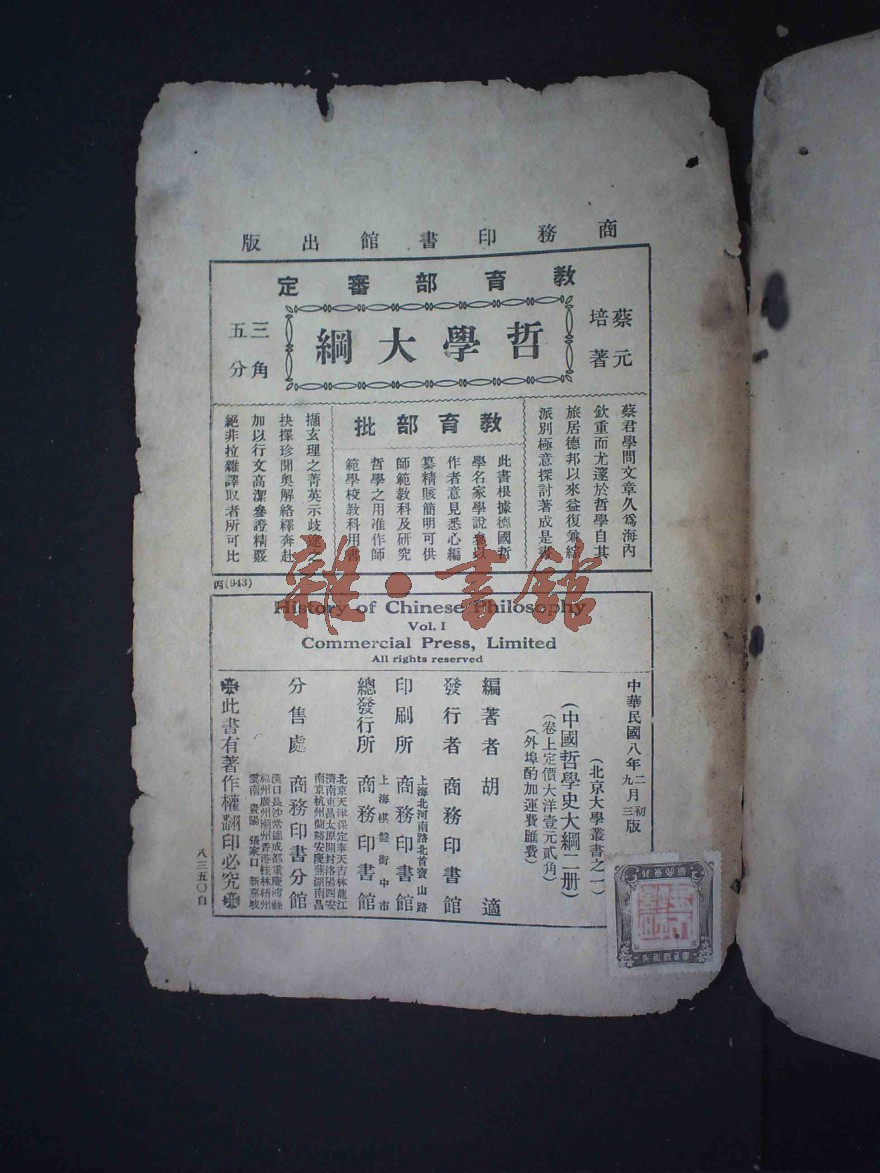 商務印書館出版
教育部審定
蔡元
培著
哲學大綱
三角
五分
蔡君學問文章久爲海內
欽重而尤邃於哲學自其
旅居德邦以來益復兼綜
派別極意探討著成是書
教育部批
此書根據德國哲
學名家學說參以
作者意見悉心編
纂精賅簡明可供
師範教科及研究
哲學之用准作師
範學校教科用書
擷玄理之菁英示歧途之
抉擇珍聞奧解絡繹奔赴
加以行文高潔參證精覈
絕非拉雜譯取者所可比
丙(943)
History of Chinese Philosophy
Vol. I
Commercial Press, Limited
All rights reserved
中華民國八年二月初版
九三
(北京大學叢書之一)
(中國哲學史大綱二册)
(卷上定價大洋壹元貳角)
(外埠酌加運費匯費)
編著者 胡適
發行者 商務印書館
上海北河南路北首寶山路
印刷所 商務印書館
上海棋盤街中市
總發行所 商務印書館
北京天津保定奉天吉林龍江
濟南東昌太原開封洛陽西安
南京杭州蘭谿安慶蕪湖南昌
分售處 商務印書分館
漢口長沙常德成都重慶瀘縣
福州廣州潮州香港桂林梧州
雲南貴陽張家口新嘉坡
此書有著作權翻印必究
八三五〇自
雜·書館